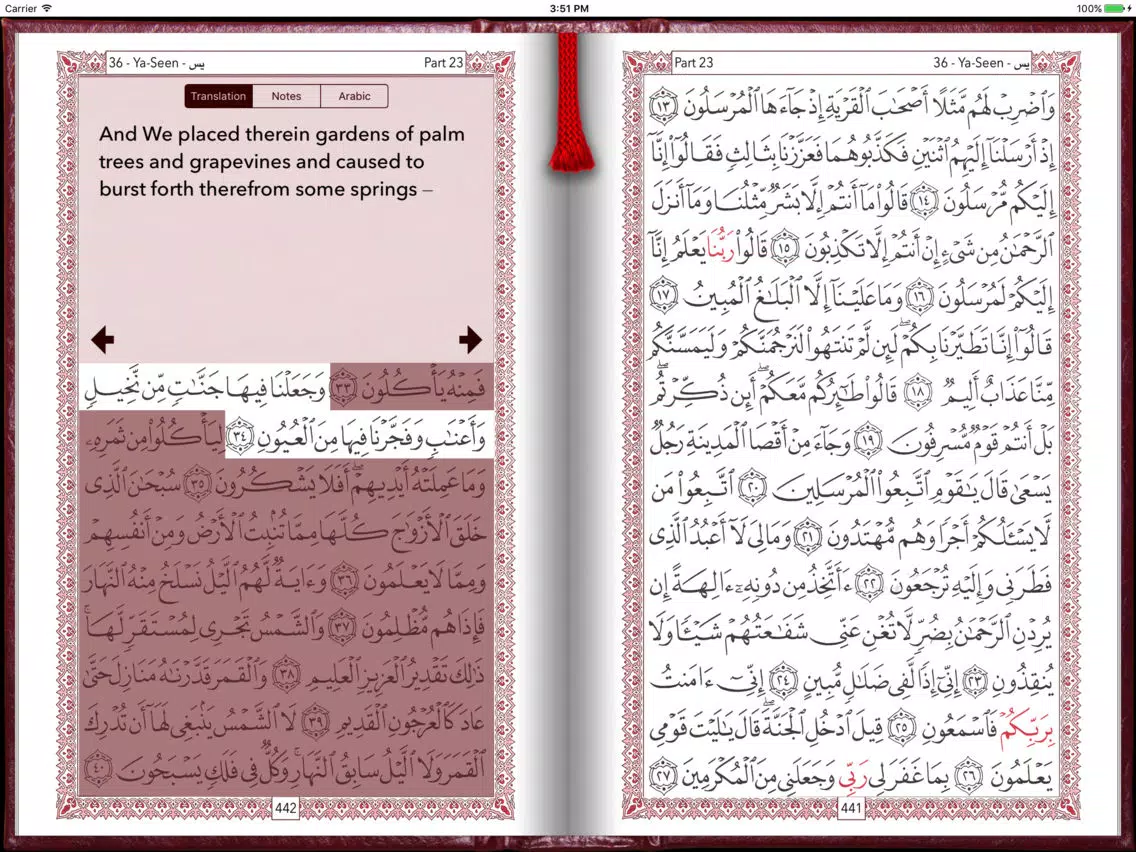 Carrier
3:51 PM
100%
Part 23
36 - Ya-Seen - يس
وَٱضۡرِبۡ لَهُم مَّثَلًا أَصۡحَٰبَ ٱلۡقَرۡيَةِ إِذۡ جَآءَهَا ٱلۡمُرۡسَلُونَ ١٣
إِذۡ أَرۡسَلۡنَآ إِلَيۡهِمُ ٱثۡنَيۡنِ فَكَذَّبُوهُمَا فَعَزَّزۡنَا بِثَالِثٖ فَقَالُوٓاْ إِنَّآ
إِلَيۡكُم مُّرۡسَلُونَ ١٤ قَالُواْ مَآ أَنتُمۡ إِلَّا بَشَرٞ مِّثۡلُنَا وَمَآ أَنزَلَ
ٱلرَّحۡمَٰنُ مِن شَيۡءٍ إِنۡ أَنتُمۡ إِلَّا تَكۡذِبُونَ ١٥ قَالُواْ رَبُّنَا يَعۡلَمُ إِنَّآ
إِلَيۡكُمۡ لَمُرۡسَلُونَ ١٦ وَمَا عَلَيۡنَآ إِلَّا ٱلۡبَلَٰغُ ٱلۡمُبِينُ ١٧
قَالُوٓاْ إِنَّا تَطَيَّرۡنَا بِكُمۡۖ لَئِن لَّمۡ تَنتَهُواْ لَنَرۡجُمَنَّكُمۡ وَلَيَمَسَّنَّكُم
مِّنَّا عَذَابٌ أَلِيمٞ ١٨ قَالُواْ طَٰٓئِرُكُم مَّعَكُمۡ أَئِن ذُكِّرۡتُمۚ
بَلۡ أَنتُمۡ قَوۡمٞ مُّسۡرِفُونَ ١٩ وَجَآءَ مِنۡ أَقۡصَا ٱلۡمَدِينَةِ رَجُلٞ
يَسۡعَىٰ قَالَ يَٰقَوۡمِ ٱتَّبِعُواْ ٱلۡمُرۡسَلِينَ ٢٠ ٱتَّبِعُواْ مَن
لَّا يَسۡـَٔلُكُمۡ أَجۡرٗا وَهُم مُّهۡتَدُونَ ٢١ وَمَالِيَ لَآ أَعۡبُدُ ٱلَّذِي
فَطَرَنِي وَإِلَيۡهِ تُرۡجَعُونَ ٢٢ ءَأَتَّخِذُ مِن دُونِهِۦٓ ءَالِهَةً إِن
يُرِدۡنِ ٱلرَّحۡمَٰنُ بِضُرّٖ لَّا تُغۡنِ عَنِّي شَفَٰعَتُهُمۡ شَيۡـٔٗا وَلَا
يُنقِذُونِ ٢٣ إِنِّيٓ إِذٗا لَّفِي ضَلَٰلٖ مُّبِينٍ ٢٤ إِنِّيٓ ءَامَنتُ
بِرَبِّكُمۡ فَٱسۡمَعُونِ ٢٥ قِيلَ ٱدۡخُلِ ٱلۡجَنَّةَۖ قَالَ يَٰلَيۡتَ قَوۡمِي
يَعۡلَمُونَ ٢٦ بِمَا غَفَرَ لِي رَبِّي وَجَعَلَنِي مِنَ ٱلۡمُكۡرَمِينَ ٢٧
441
36 - Ya-Seen - يس
Part 23
Translation
Notes
Arabic
And We placed therein gardens of palm
trees and grapevines and caused to
burst forth therefrom some springs –
فَمِنۡهُ يَأۡكُلُونَ ٣٣ وَجَعَلۡنَا فِيهَا جَنَّٰتٖ مِّن نَّخِيلٖ
وَأَعۡنَٰبٖ وَفَجَّرۡنَا فِيهَا مِنَ ٱلۡعُيُونِ ٣٤ لِيَأۡكُلُواْ مِن ثَمَرِهِۦ
وَمَا عَمِلَتۡهُ أَيۡدِيهِمۡۚ أَفَلَا يَشۡكُرُونَ ٣٥ سُبۡحَٰنَ ٱلَّذِي
خَلَقَ ٱلۡأَزۡوَٰجَ كُلَّهَا مِمَّا تُنۢبِتُ ٱلۡأَرۡضُ وَمِنۡ أَنفُسِهِمۡ
وَمِمَّا لَا يَعۡلَمُونَ ٣٦ وَءَايَةٞ لَّهُمُ ٱلَّيۡلُ نَسۡلَخُ مِنۡهُ ٱلنَّهَارَ
فَإِذَا هُم مُّظۡلِمُونَ ٣٧ وَٱلشَّمۡسُ تَجۡرِي لِمُسۡتَقَرّٖ لَّهَاۚ
ذَٰلِكَ تَقۡدِيرُ ٱلۡعَزِيزِ ٱلۡعَلِيمِ ٣٨ وَٱلۡقَمَرَ قَدَّرۡنَٰهُ مَنَازِلَ حَتَّىٰ
عَادَ كَٱلۡعُرۡجُونِ ٱلۡقَدِيمِ ٣٩ لَا ٱلشَّمۡسُ يَنۢبَغِي لَهَآ أَن تُدۡرِكَ
ٱلۡقَمَرَ وَلَا ٱلَّيۡلُ سَابِقُ ٱلنَّهَارِۚ وَكُلّٞ فِي فَلَكٖ يَسۡبَحُونَ ٤٠
442